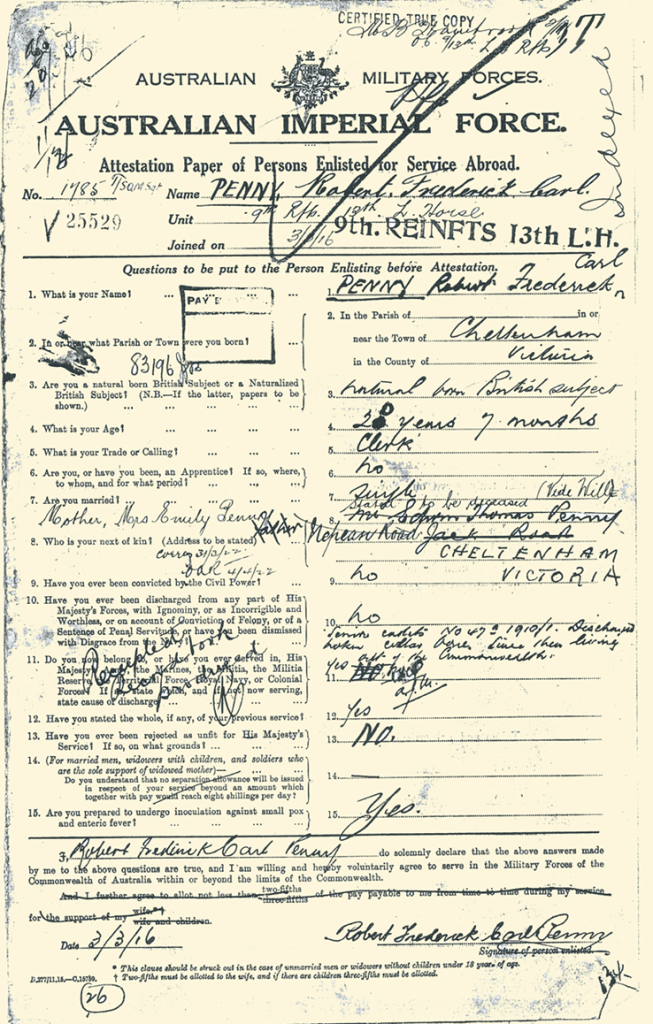 CERTIFIED TRUE COPY
AUSTRALIAN MILITARY FORCES.
AUSTRALIAN IMPERIAL FORCE.
Indexed
Attestation Paper of Persons Enlisted for Service Abroad.
No. 1785 Name PENNY, Robert Frederick Carl.
25529 Unit 9th Rfts. 13th L. Horse
9th. REINFTS 13th L.H.
Joined on 3/3/16
Questions to be put to the Person Enlisting before Attestation.
Carl
1. What is your Name? ... 1. PENNY Robert Frederick
PAY
2. In or near what Parish or Town were you born? ... 2. In the Parish of in or
near the Town of Cheltenham
in the County of Victoria
83196
3. Are you a natural born British Subject or a Naturalized
British Subject? (N.B.—If the latter, papers to be
shown.) ... 3. natural born British subject
4. What is your Age? ... 4. 20 years 7 months
5. What is your Trade or Calling? ... 5. Clerk
6. Are you, or have you been, an Apprentice? If so, where,
to whom, and for what period? ... 6. no
7. Are you married? ... 7. Single (Vide Will)
Stated to be deceased
Mother, Mrs Emily Penny
8. Who is your next of kin? (Address to be stated) 8. Thomas Penny
father Nepean Road Jack Road
CHELTENHAM
VICTORIA
31/3/22
4/4/22
9. Have you ever been convicted by the Civil Power? 9. no
10. Have you ever been discharged from any part of His
Majesty's Forces, with Ignominy, or as Incorrigible and
Worthless, or on account of Conviction of Felony, or of a
Sentence of Penal Servitude, or have you been dismissed
with Disgrace from the Navy? 10. no
Senior cadets No 47 1910/1. Discharged
broken collar Since then living
out of the Commonwealth.
11. Do you now belong to, or have you ever served in, His
Majesty's Army, the Marines, the Militia, the Militia
Reserve, the Territorial Force, Royal Navy, or Colonial
Forces? If so, state which, and if not now serving,
state cause of discharge 11. yes
12. Have you stated the whole, if any, of your previous service? 12. yes
13. Have you ever been rejected as unfit for His Majesty's
Service? If so, on what grounds? ... 13. NO.
14. (For married men, widowers with children, and soldiers who
are the sole support of widowed mother)—
Do you understand that no separation allowance will be issued
in respect of your service beyond an amount which
together with pay would reach eight shillings per day? 14. —
15. Are you prepared to undergo inoculation against small pox
and enteric fever? ... 15. Yes.
I, Robert Frederick Carl Penny do solemnly declare that the above answers made
by me to the above questions are true, and I am willing and hereby voluntarily agree to serve in the Military Forces of the
Commonwealth of Australia within or beyond the limits of the Commonwealth.
And I further agree to allot not less than two-fifths three-fifths of the pay payable to me from time to time during my service
for the support of my wife.*† wife and children.
Date 3/3/16 Robert Frederick Carl Penny
Signature of person enlisted.
* This clause should be struck out in the case of unmarried men or widowers without children under 18 years of age.
† Two-fifths must be allotted to the wife, and if there are children three-fifths must be allotted.
D.277/11.15.—C.15780.
26